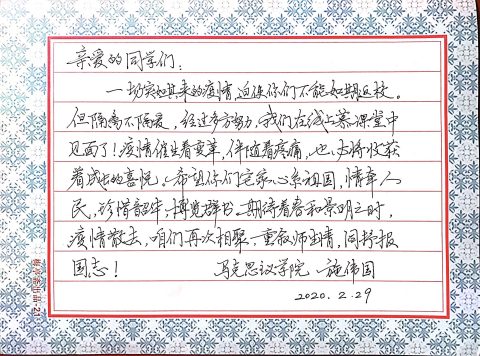 亲爱的同学们：
一场突如其来的疫情迫使你们不能如期返校。
但隔离不隔爱，经过多方努力，我们在线上慕课堂中
见面了！疫情催生着变革，伴随着疼痛，也必将收获
着成长的喜悦。希望你们宅家心系祖国，情牵人
民，珍惜韶华，博览群书。期待春和景明之时，
疫情散去，咱们再次相聚，重叙师生情，同抒报
国志！ 马克思议学院 施伟国
2020.2.29